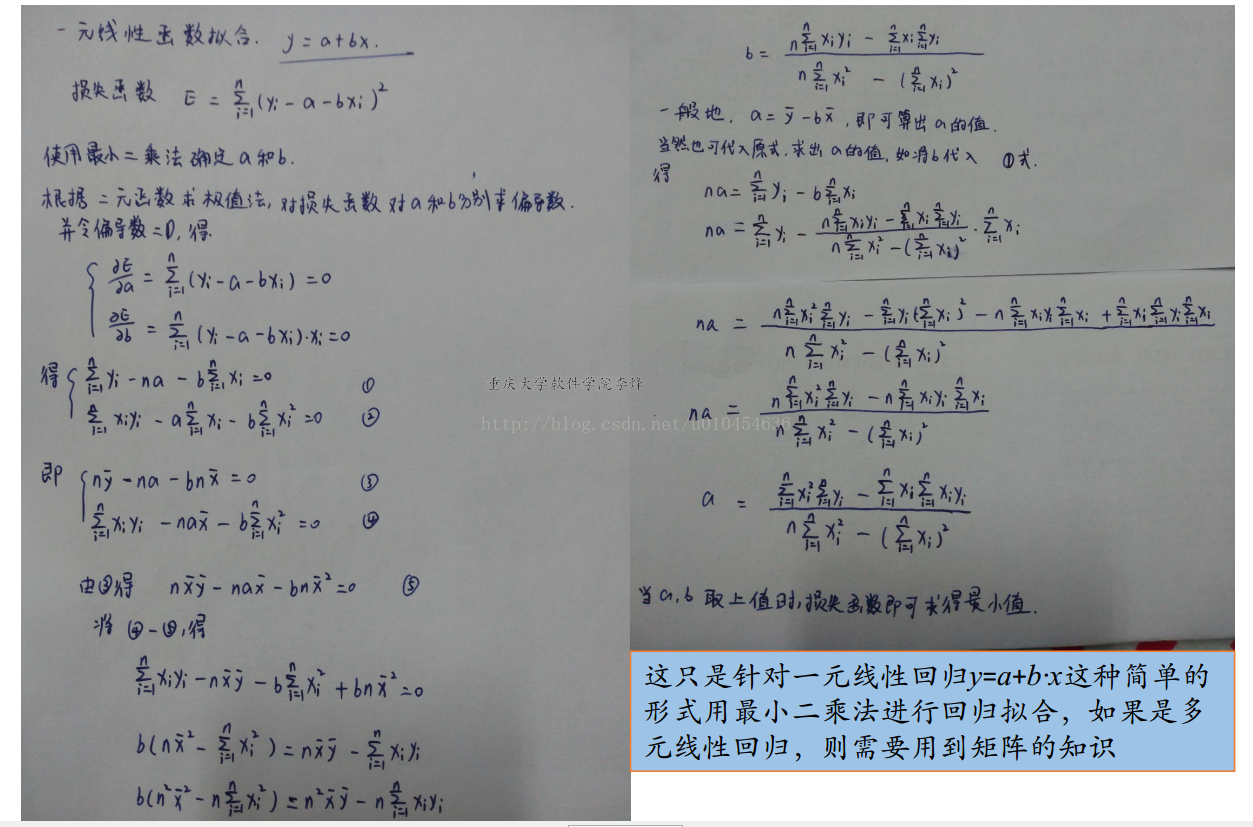 一元线性函数拟合. y = a+bx.
损失函数 E = \sum_{i=1}^{n}(y_i - a - bx_i)^2
使用最小二乘法确定a和b.
根据二元函数求极值法,对损失函数对a和b分别求偏导数.
并令偏导数=0,得.
\frac{∂E}{∂a} = \sum_{i=1}^{n}(y_i - a - bx_i) = 0
\frac{∂E}{∂b} = \sum_{i=1}^{n}(y_i - a - bx_i)·x_i = 0
得 \sum_{i=1}^{n}y_i - na - b\sum_{i=1}^{n}x_i = 0 ①
\sum_{i=1}^{n}x_iy_i - a\sum_{i=1}^{n}x_i - b\sum_{i=1}^{n}x_i^2 = 0 ②
即 n\bar{y} - na - bn\bar{x} = 0 ③
\sum_{i=1}^{n}x_iy_i - na\bar{x} - b\sum_{i=1}^{n}x_i^2 = 0 ④
由③得 n\bar{x}\bar{y} - na\bar{x} - bn\bar{x}^2 = 0 ⑤
将 ④-⑤,得
\sum_{i=1}^{n}x_iy_i - n\bar{x}\bar{y} - b\sum_{i=1}^{n}x_i^2 + bn\bar{x}^2 = 0
b(n\bar{x}^2 - \sum_{i=1}^{n}x_i^2) = n\bar{x}\bar{y} - \sum_{i=1}^{n}x_iy_i
b(n^2\bar{x}^2 - n\sum_{i=1}^{n}x_i^2) = n^2\bar{x}\bar{y} - n\sum_{i=1}^{n}x_iy_i
b = \frac{n\sum_{i=1}^{n}x_iy_i - \sum_{i=1}^{n}x_i\sum_{i=1}^{n}y_i}{n\sum_{i=1}^{n}x_i^2 - (\sum_{i=1}^{n}x_i)^2}
一般地, a = \bar{y} - b\bar{x}, 即可算出a的值.
当然也可代入原式,求出a的值,如将b代入 ①式.
得
na = \sum_{i=1}^{n}y_i - b\sum_{i=1}^{n}x_i
na = \sum_{i=1}^{n}y_i - \frac{n\sum_{i=1}^{n}x_iy_i - \sum_{i=1}^{n}x_i\sum_{i=1}^{n}y_i}{n\sum_{i=1}^{n}x_i^2 - (\sum_{i=1}^{n}x_i)^2}·\sum_{i=1}^{n}x_i
na = \frac{n\sum_{i=1}^{n}x_i^2\sum_{i=1}^{n}y_i - \sum_{i=1}^{n}y_i(\sum_{i=1}^{n}x_i)^2 - n\sum_{i=1}^{n}x_iy_i\sum_{i=1}^{n}x_i + \sum_{i=1}^{n}x_i\sum_{i=1}^{n}y_i\sum_{i=1}^{n}x_i}{n\sum_{i=1}^{n}x_i^2 - (\sum_{i=1}^{n}x_i)^2}
na = \frac{n\sum_{i=1}^{n}x_i^2\sum_{i=1}^{n}y_i - n\sum_{i=1}^{n}x_iy_i\sum_{i=1}^{n}x_i}{n\sum_{i=1}^{n}x_i^2 - (\sum_{i=1}^{n}x_i)^2}
a = \frac{\sum_{i=1}^{n}x_i^2\sum_{i=1}^{n}y_i - \sum_{i=1}^{n}x_i\sum_{i=1}^{n}x_iy_i}{n\sum_{i=1}^{n}x_i^2 - (\sum_{i=1}^{n}x_i)^2}
当a,b 取上值时,损失函数即可求得最小值.
重庆大学软件学院李烽
http://blog.csdn.net/u010454636
这只是针对一元线性回归y=a+b·x这种简单的
形式用最小二乘法进行回归拟合，如果是多
元线性回归，则需要用到矩阵的知识